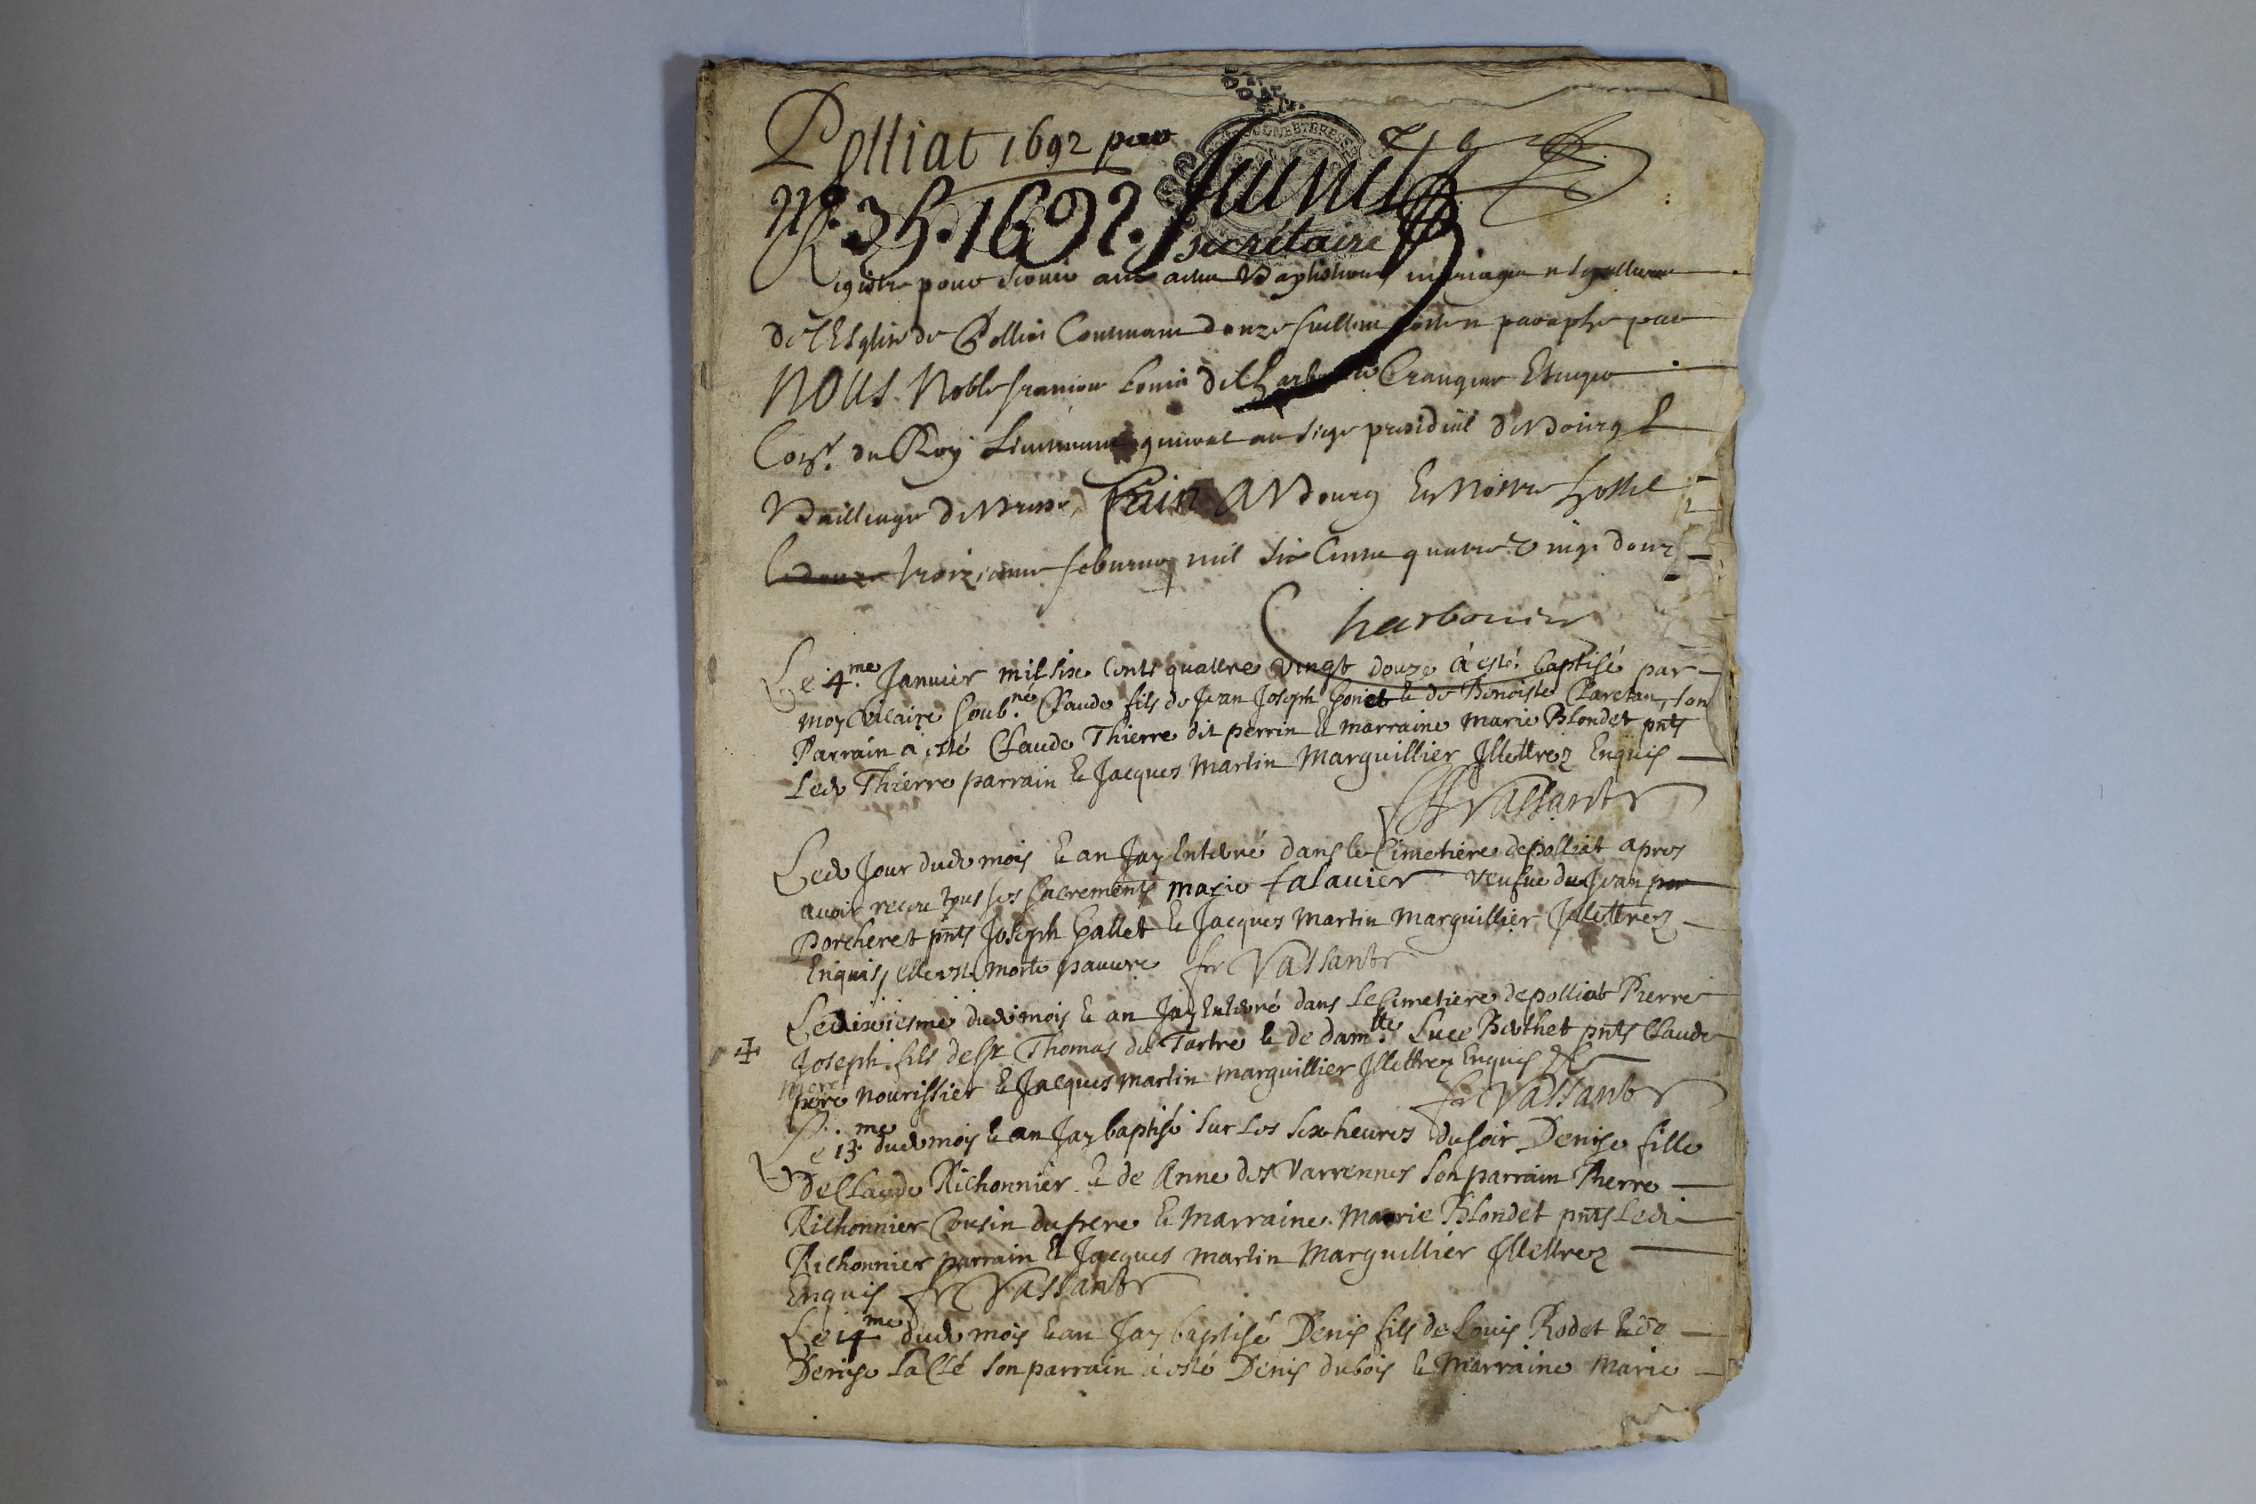 Polliat 1692 par
N.º 35. 1692.
secrétaire
Registre pour servir aux actes Baptistaires mariages et sepultures
de l'Esglise de Pollia Contenant douze feuillets paraphe par
NOUS Noble françois Louis de Charbonnier Crangeac Escuyer
Cons.r du Roy Lieutenant general au siege presidial de Bourg &
Bailliage de Bresse, fait A Bourg En Nostre hostel
Le douze troizieme feburier mil six Cents quatre vingt douze
Charbonnier
Le 4.me Janvier mil six cents quattre vingt douze à esté baptisé par
moy Vicaire soub.né Claude fils de Jean Joseph Gonet & de Benoiste Claretan, son
Parrain à esté Claude Thierre dit perrin & marraine marie Blondet pnts
Led Thierre parrain & Jacques Martin Marguillier Illettrez Enquis
fr Vassantr
Led Jour dud mois & an Jay Enterré dans le Cimetiere de polliat apres
avoir receu tous ses sacrements marie falavier veufue du Jean per
Porcheret pnts Joseph Gallet & Jacques Martin Marguillier Illettrez
Enquis, elle est morte pauvre fr Vassantr
Le dixiesme dud mois & an Jay Enterré dans le Cimetiere de polliat Pierre
Joseph fils de Sr Thomas du Tartre & de dam.lle Luce Berthet pnts Claude
mere
pere nourissier & Jacques martin marguillier Illettrez Enquis
fr Vassantr
Le 13.me dud mois & an Jay baptisé sur les six heures du soir Denise fille
De Claude Richonnier & de Anne des Varrennes son parrain Pierre
Richonnier Cousin du frere & Marraine Marie Blondet pnts Led
Richonnier parrain & Jacques martin Marguillier Illettrez
Enquis fr Vassantr
Le 14me dud mois & an Jay baptisé Denis fils de Louis Rodet & de
Denise salle son parrain à esté Denis dubois & Marraine Marie